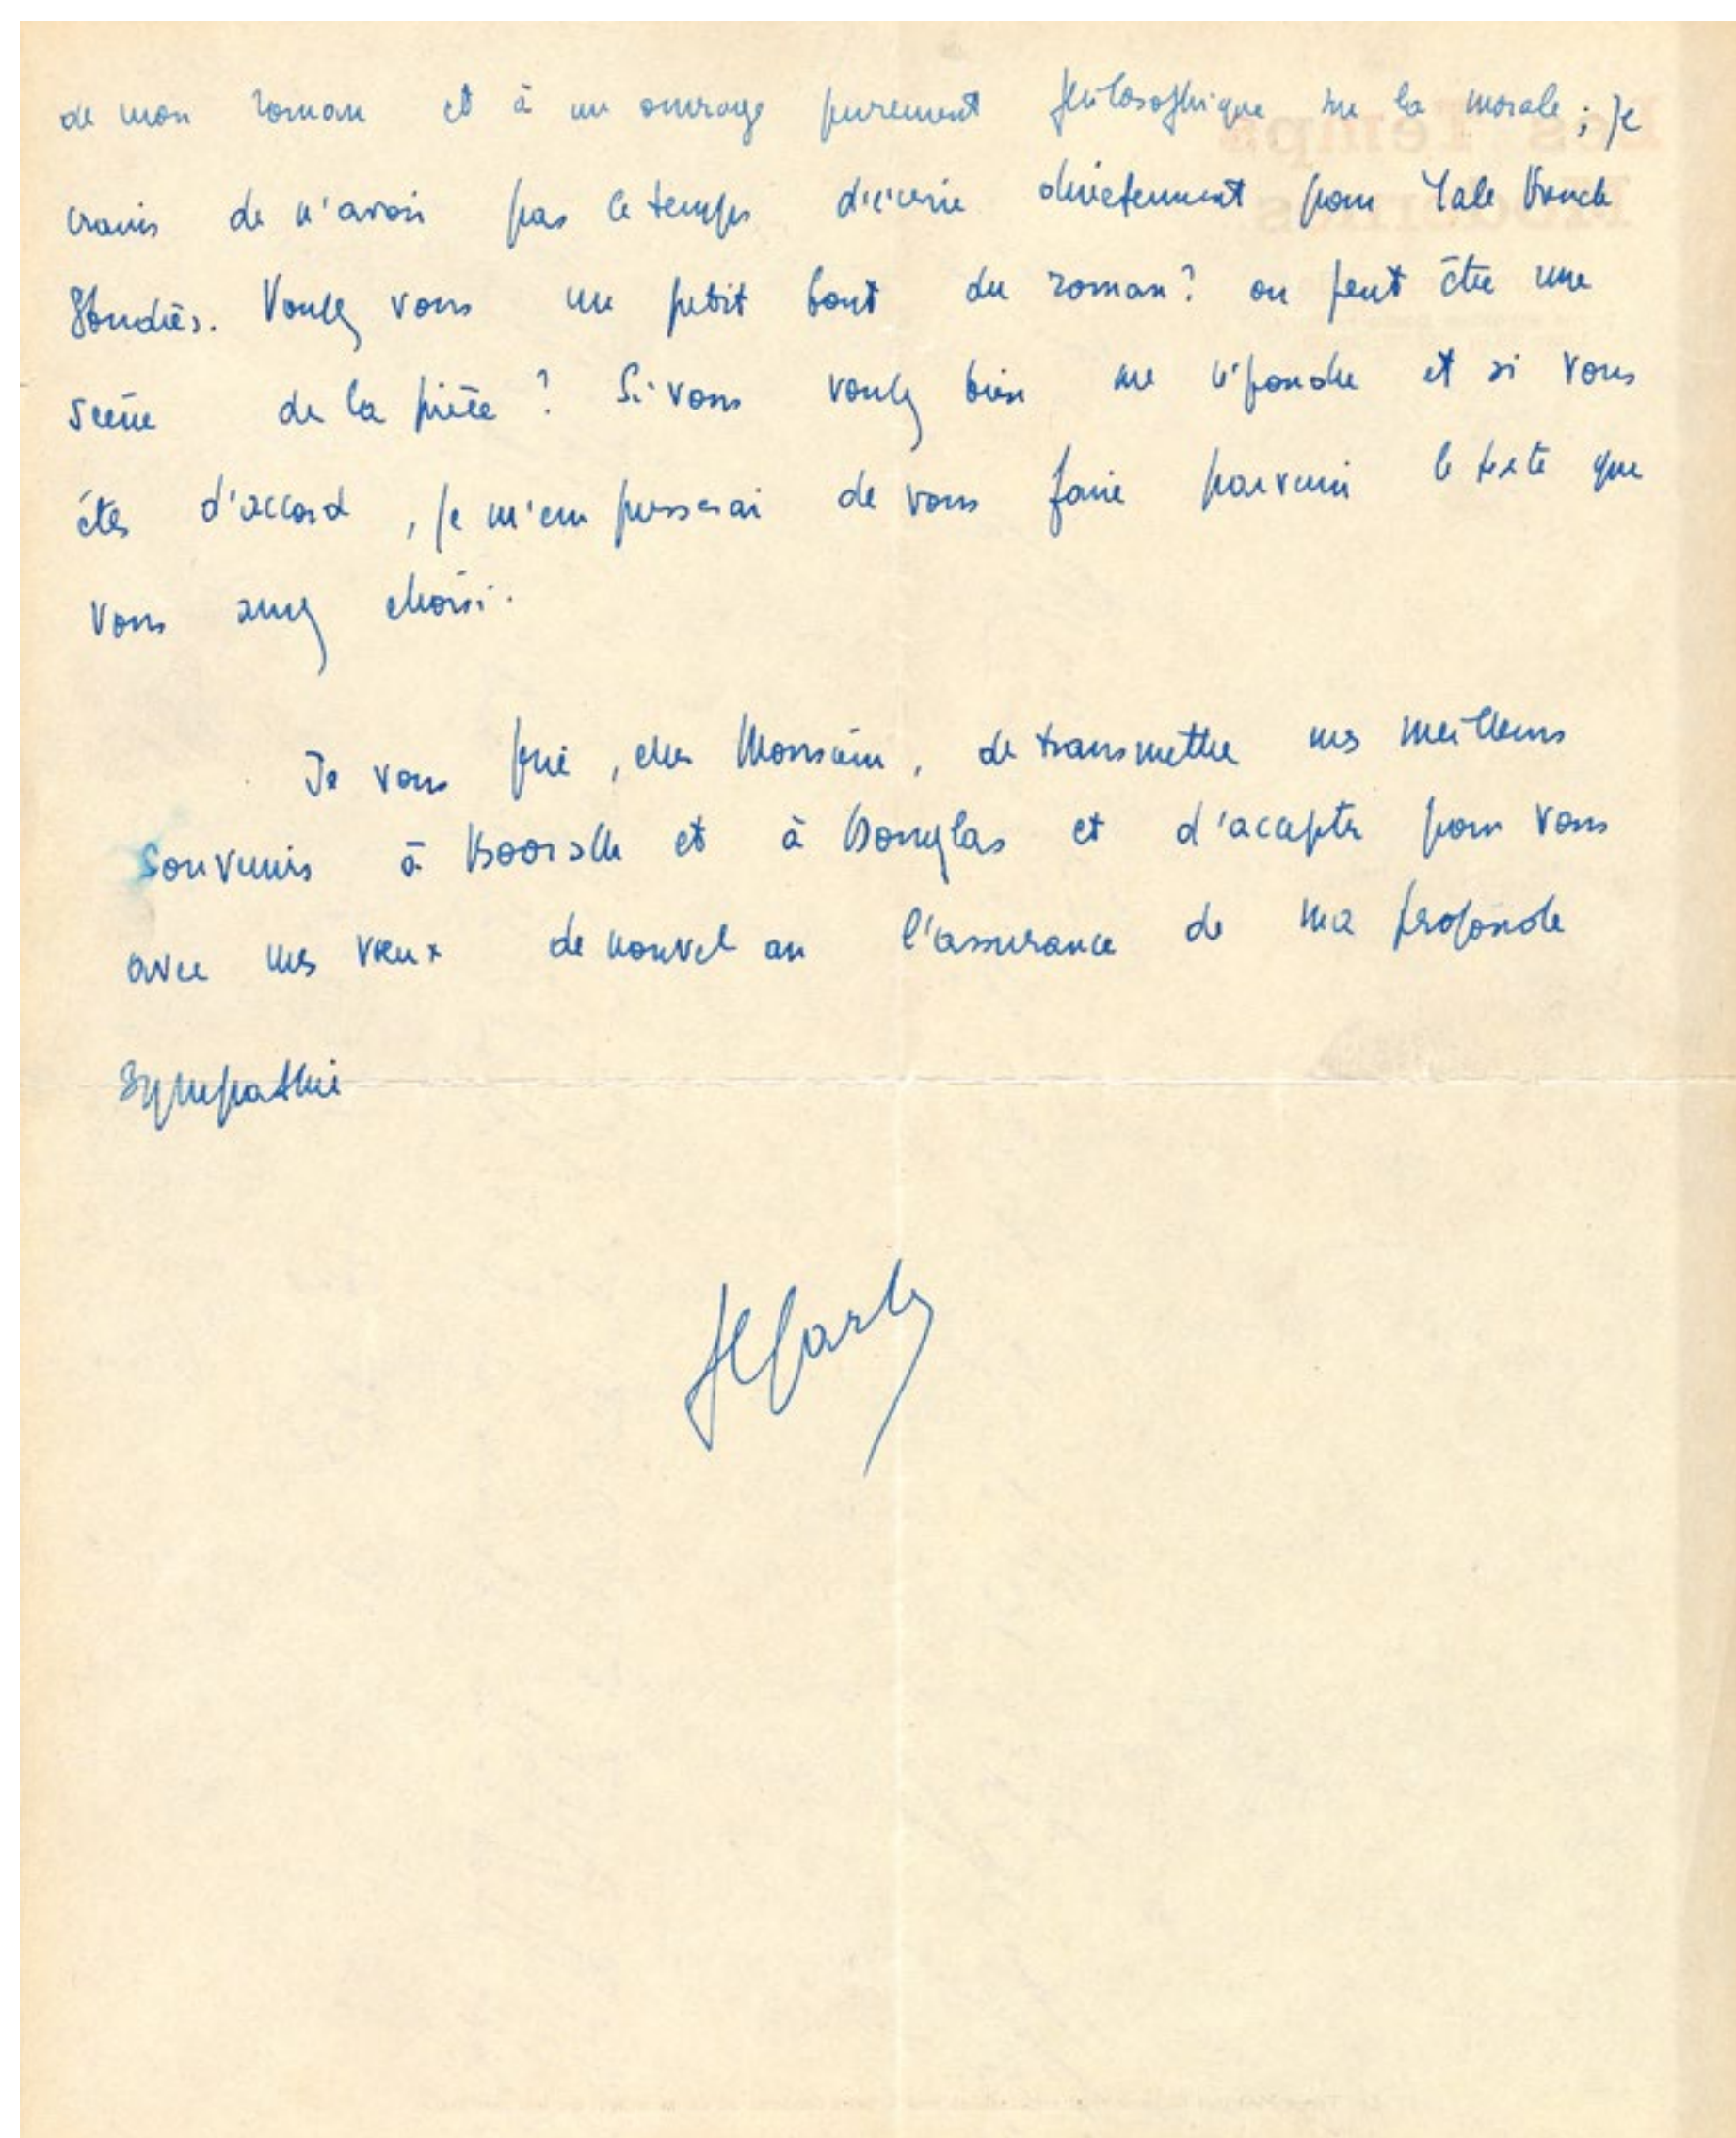 de mon roman et à un ouvrage purement philosophique sur la morale ; je
crains de n'avoir pas le temps d'écrire directement pour Yale French
Studies. Voulez vous un petit bout du roman ? ou peut être une
scène de la pièce ? Si vous voulez bien me répondre et si vous
êtes d'accord , je m'empresserai de vous faire parvenir le texte que
vous aurez choisi.
Je vous prie , cher Monsieur , de transmettre mes meilleurs
souvenirs à et à Douglas et d'accepter pour vous
avec mes vœux de nouvel an l'assurance de ma profonde
sympathie
JPSartre
Les Temps
Modernes